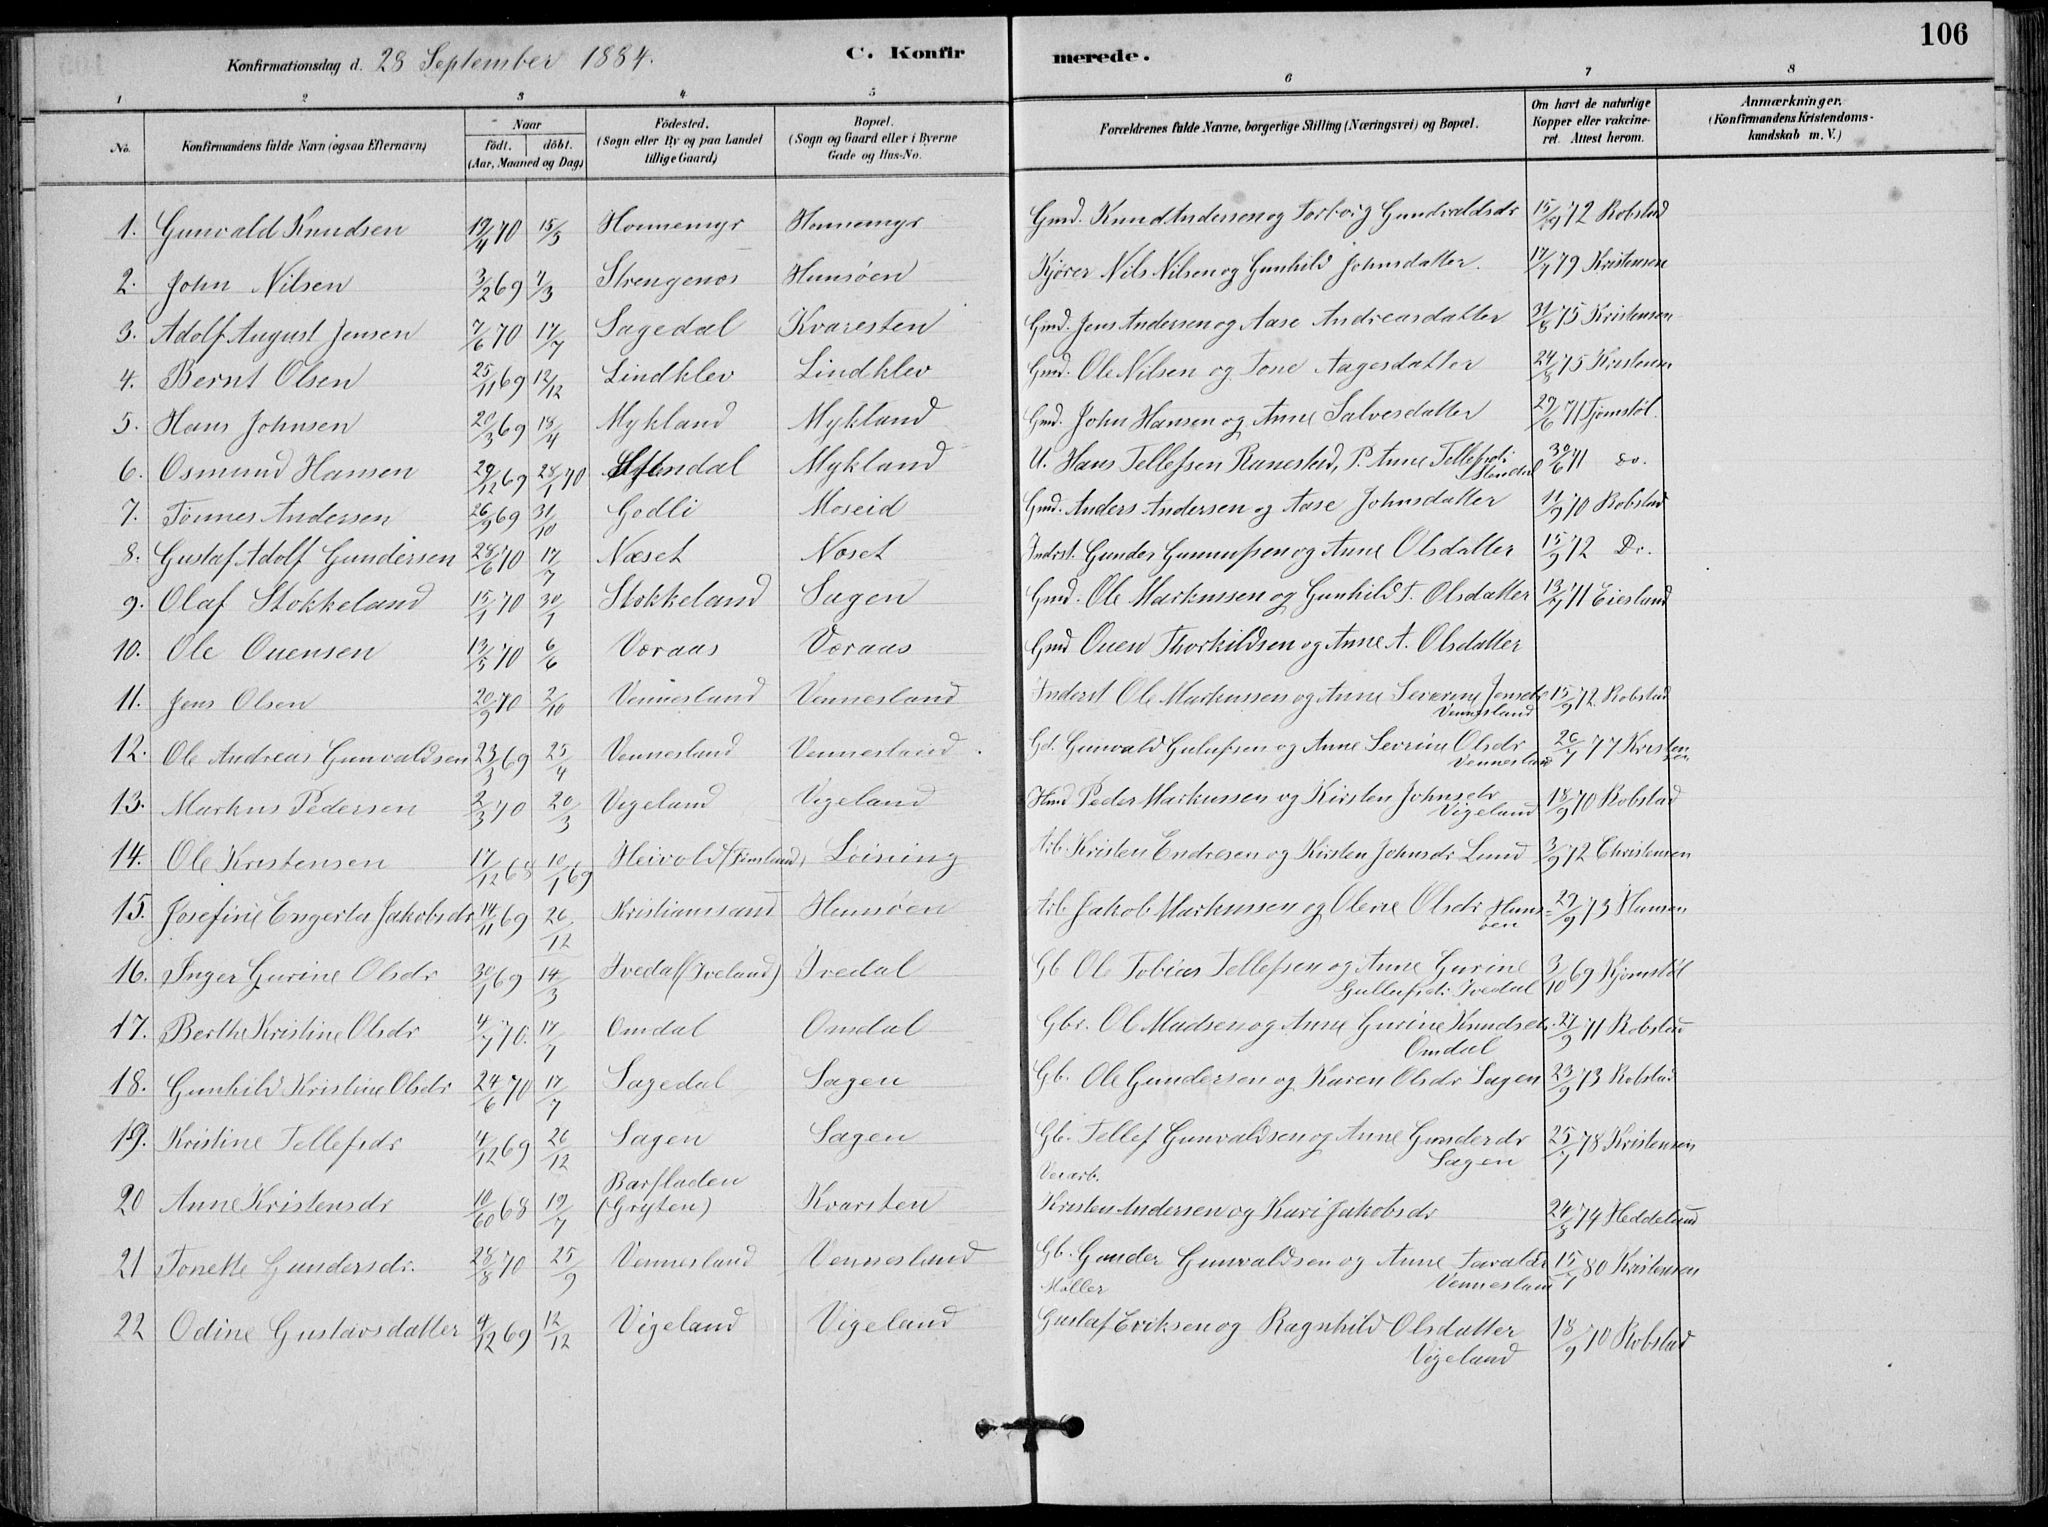 Konfirmationsdag d. 28 September 1884. C. Konfirmerede. 106
1 2 3 4 5 6 7 8
No. Konfirmandens fulde Navn (ogsaa Efternavn) Naar født. døbt. (Aar, Maaned og Dag) Fødested. (Sogn eller By og paa Landet tillige Gaard) Bopæl. (Sogn og Gaard eller i Byerne Gade og Hus-No. Forældrenes fulde Navne, borgerlige Stilling (Næringsvei) og Bopæl. Om havt de naturlige Kopper eller vakcineret. Attest herom. Anmærkninger. (Konfirmandens Kristendomskundskab m. V.)
1. Gunvald Knudsen 19/4 70 15/5 Honnemyr Honnemyr Gmd. Knud Andersen og Torborg Gundvaldsdr 15/9 72 Robstad
2. John Nilsen 3/2 69 7/3 Strengenes Hunsøen Kjører Nils Nilsen og Gunhild Johnsdatter. 17/7 79 Kristensen
3. Adolf August Jensen 7/6 70 17/7 Sagedal Kvaresten Gmd. Jens Andersen og Aase Andreasdatter 31/8 75 Kristensen
4. Bernt Olsen 25/11 69 12/12 Lindklev Lindklev Gmd. Ole Nilsen og Tone Aagesdatter 24/8 75 Kristensen
5. Hans Johnsen 20/3 69 18/4 Mykland Mykland Gmd. John Hansen og Anne Salvesdatter 27/6 71 Tjomstøl.
6. Osmund Hansen 29/12 69 28/1 70 Stendal Mykland U. Hans Tellefsen Ranestad, P. Anne Tellefsdr Stendal 30/6 71 do.
7. Tønnes Andersen 26/9 69 31/10 Godli Moseid Gmd. Anders Andersen og Aase Johnsdatter 11/9 70 Robstad
8. Gustaf Adolf Gundersen 28/6 70 17/7 Næset Næset Inderst. Gunder Gunnufsen og Anne Olsdatter 15/9 72 Do.
9. Olaf Stokkeland 15/1 70 30/1 Stokkeland Sagen Gmd. Ole Markussen og Gunhild T. Olsdatter 13/7 71 Eiesland
10. Ole Ouensen 13/5 70 6/6 Væraas Væraas Gmd Ouen Thorkildsen og Anne A. Olsdatter
11. Jens Olsen 20/9 70 2/10 Vennesland Vennesland Inderst Ole Markussen og Anne Severine Jensdr Vennesland 15/9 72. Robstad
12. Ole Andreas Gunvaldsen 23/3 69 25/4 Vennesland Vennesland. Gd. Gunvald Gulufsen og Anne Severine Olsdr Vennesland 26/7 77 Kristensen
13. Markus Pedersen 2/3 70 20/3 Vigeland Vigeland Hmd Peder Markussen og Kirsten Johnsdr Vigeland 18/9 70 Robstad
14. Ole Kristensen 17/12 68 10/1 69 Heivold (Finsland) Loining Arb. Kristen Endresen og Kirsten Johnsdr Lund 3/9 72 Christensen
15. Josefine Engerta Jakobsdr 14/11 69 26/12 Kristianssand Hunsøen Arb Jakob Markussen og Olene Olsdr Hunsøen 29/9 73 Hansen
16. Inger Gurine Olsdr 30/1 69 14/3 Ivedal (Iveland) Ivedal Gb Ole Tobias Tellefsen og Anne Gurine Gullufsdr Ivedal 3/10 69 Kjomstøl
17. Berthe Kristine Olsdr 4/7 70. 17/7 Omdal Omdal Gbr. Ole Madsen og Anne Gurine Knudsdr. Omdal 27/9 71 Robstad
18. Gunhild Kristine Olsdr 24/6 70 17/7 Sagedal Sagen Gb. Ole Gundersen og Karen Olsdr Sagen 23/9 73 Robstad
19. Kristine Tellefsdr 4/12 69 26/12 Sagen Sagen Gb. Tellef Gunvaldsen og Anne Gundersdr Sagen 25/7 78 Kristensen
20 Anne Kristensdr 10/60 68 19/7 Barfladen (Gryten) Kvarsten Veiarb. Kristen Andersen og Kari Jakobsdr 24/8 74 Heddeland
21 Tonette Gundersdr. 28/8 70 25/9 Vennesland Vennesland Gb. Gunder Gunvaldsen og Anne Tarvaldsdr Vennesland 15/7 80 Kristensen
22 Odine Gustavsdatter 4/12 69 12/12 Vigeland Vigeland Møller Gustaf Eriksen og Ragnhild Olsdatter Vigeland 18/9 70 Robstad